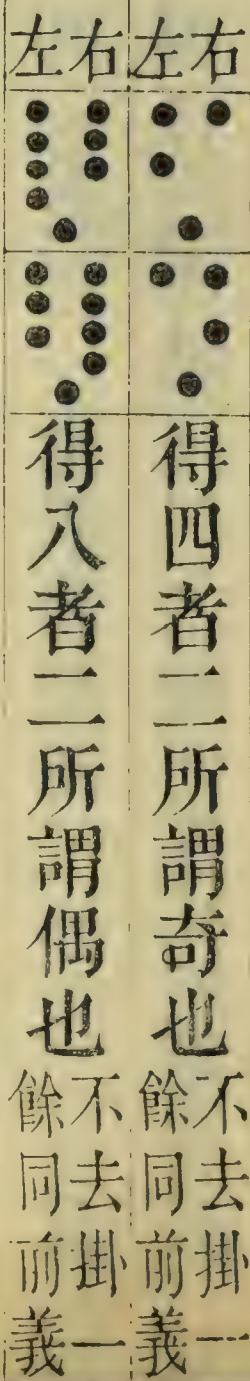 右左
得四者二所謂奇也
不去掛一
餘同前義
右左
得八者二所謂偶也
不去掛一
餘同前義